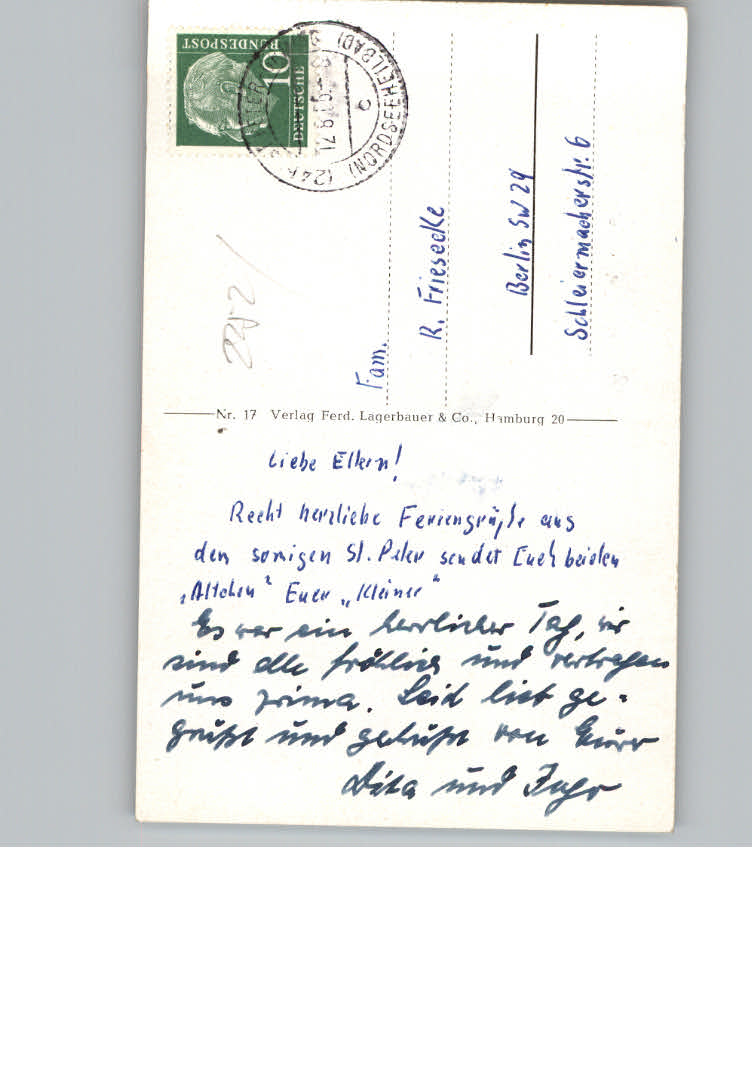 DEUTSCHE
BUNDESPOST
10
(NORDSEEHEILBAD)
Fam.
R. Friesecke
Berlin SW 29
Schleiermacherstr. 6
2252
Nr. 17 Verlag Ferd. Lagerbauer & Co., Hamburg 20
Liebe Eltern!
Recht herzliche Feriengrüße aus
dem sonnigen St. Peter sendet Euch beiden
„Altchen" Euer „Kleiner"
Es war ein herrlicher Tag, wir
sind alle fröhlich und vertragen
uns prima. Seid lieb ge=
grüßt und geküßt von Eurer
Dita und Ingo